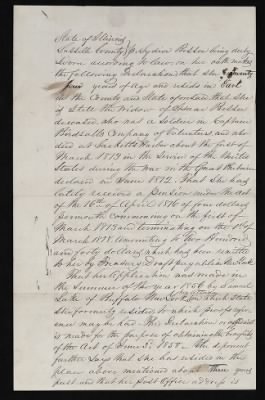 State of Illinois
LaSalle County Lydia Potter being duly
sworn according to law on her oath makes
the following Declaration that she is Seventy
four years of Age and resides in Earl
in the County and State aforesaid that she
is still the Widow of Potter
deceased who was a Soldier in Captain
Birdsalls Company of Volunteers and who
died at Sacketts Harbor about the first of
March 1813 in the Service of the United
States during the War with Great Britain
declared in June 1812. That she has
lately received a Pension under the Act
of the 16th of April 1816 of four dollars
per month commencing on the first of
March 1813 and terminating on the 1st of
March 1818. Amounting to Two Hundred
and forty dollars which has been remitted
to her by Treasury Draft payable in New York
That her application was made in
the Summer of the year 1856 by Samuel
Lake of Buffalo New York in which State
she formerly resided to which prayer
ence may be had. The Declaration
is made for the purpose of obtaining
of the Act of June 3d 1858. The deponent
further Says that She has resided in the
place above mentioned about three years
past and that her Post Office address is